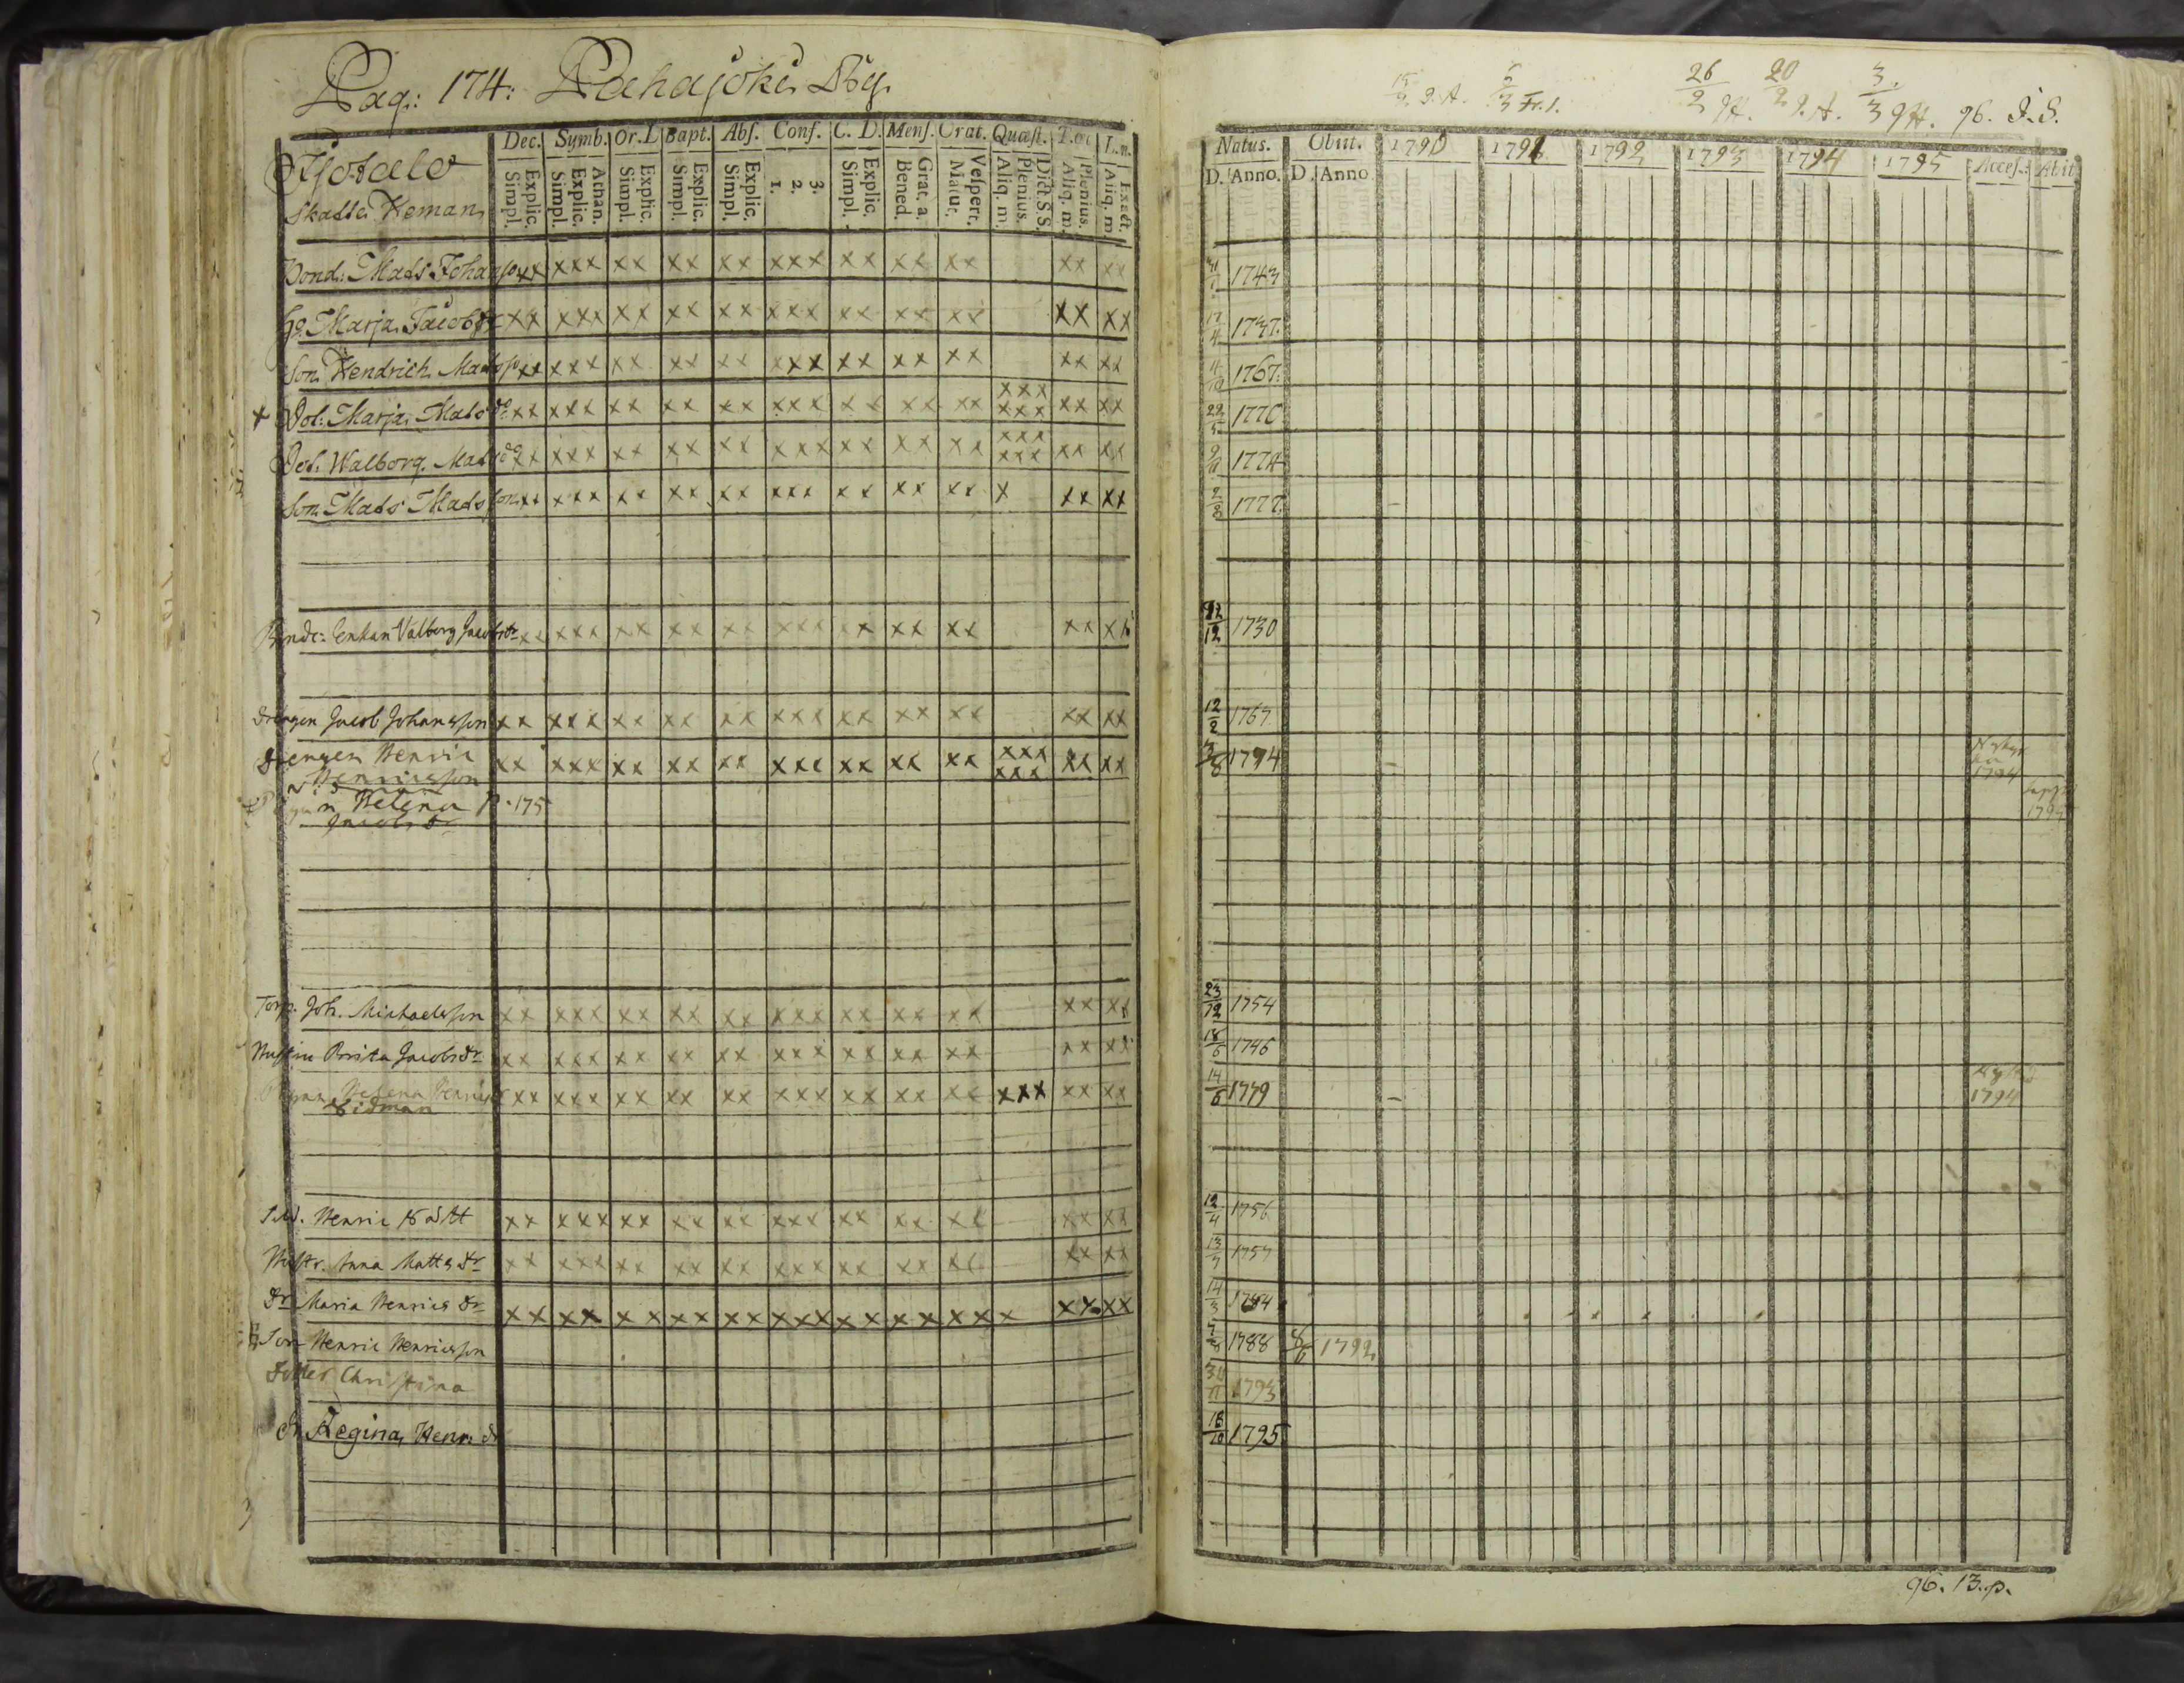 Pag: 174: Pahajoki By.
Isotalo
Skatte Heman
Dec. Symb. Or. L Bapt. Abs. Conf. C. D. Mens. Orat. Quæst. T. oc L. n.
Explic. Simpl. Athan. Explic. Simpl. Explic. Simpl. Explic. Simpl. Explic. Simpl. 3. 2. 1. Explic. Simpl. Grat. a. Bened. Vespert. Matut. Dict. S. S. Plenius. Aliq. m. Plenius. Aliq. m. Exact. Aliq. m.
Bond: Mats Johansso xx xxx xx xx xx xxx xx xx xx xx xx
Hu. Marja Jacobsdr xx xxx xx xx xx xxx xx xx xx xx xx
Son Hendrich Madsso xx xxx xx xx xx xxx xx xx xx xx xx
+ Dot: Marja Matsdr xx xxx xx xx xx xxx xx xx xx xxx xxx xx xx
Dot. Walborg Matsdr xx xxx xx xx xx xxx xx xx xx xxx xxx xx xx
Son Mats Matsson xx xxx xx xx xx xxx xx xx xx x xx xx
Bonde: Enkan Valborg Jacobsdr xx xxx xx xx xx xxx xx xx xx xx xx
Drengen Jacob Johansson xx xxx xx xx xx xxx xx xx xx xx xx
Drengen Henric Henricsson xx xxx xx xx xx xxx xx xx xx xxx xxx xx xx
Helena p. 175
Jacobsdr
Torp. Joh. Michaelsson xx xxx xx xx xx xxx xx xx xx xx xx
Hustru Brita Jacobsdr xx xxx xx xx xx xxx xx xx xx xx xx
Helena Henricsdr xx xxx xx xx xx xxx xx xx xx xxx xx xx
Widman
Sold. Henric xx xxx xx xx xx xxx xx xx xx xx xx
Hustr. Anna Mattsdr xx xxx xx xx xx xxx xx xx xx xx xx
Dr Maria Henricsdr xx xx xx xx xx xxx xx xx xx x xx xx
Son Henric Henricsson
Dotter Christina
Dr Regina Henr. dr
15/2 9. A. 3 Fr. 1. 26/2 9 A. 20/2 9. A. 3/3 9 A. 96. J. S.
Natus. Obiit. 1790 1791 1792 1793 1794 1795 Acces. Abiit
D. Anno. D. Anno
1743
17/4 1737.
1767.
22/5 1770
9/11 1774
2/8 1777.
12 1730
12/2 1767
8 1794
1794
1794
23/12 1754
18/6 1746
14/6 1779 1794
12/4 1756
13/7 1757
14/3 1784
7/8 1788 8/6 1792
30/11 1793
18/10 1795
96. 13. p.